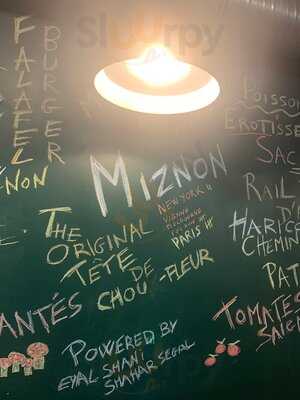 Sluurpy
FALAFEL
BURGER
NON
MIZNON
NEW YORK
VIENNA
MELBOURNE
PARIS
THE
ORIGINAL
TÊTE
DE
CHOU-FLEUR
ANTÉS
POWERED BY
EYAL SHANI
SHAHAR SEGAL
POISSO
EROTISSE
SAC
RAIL
D'
HARIC
CHEMIN
PAT
TOMATES